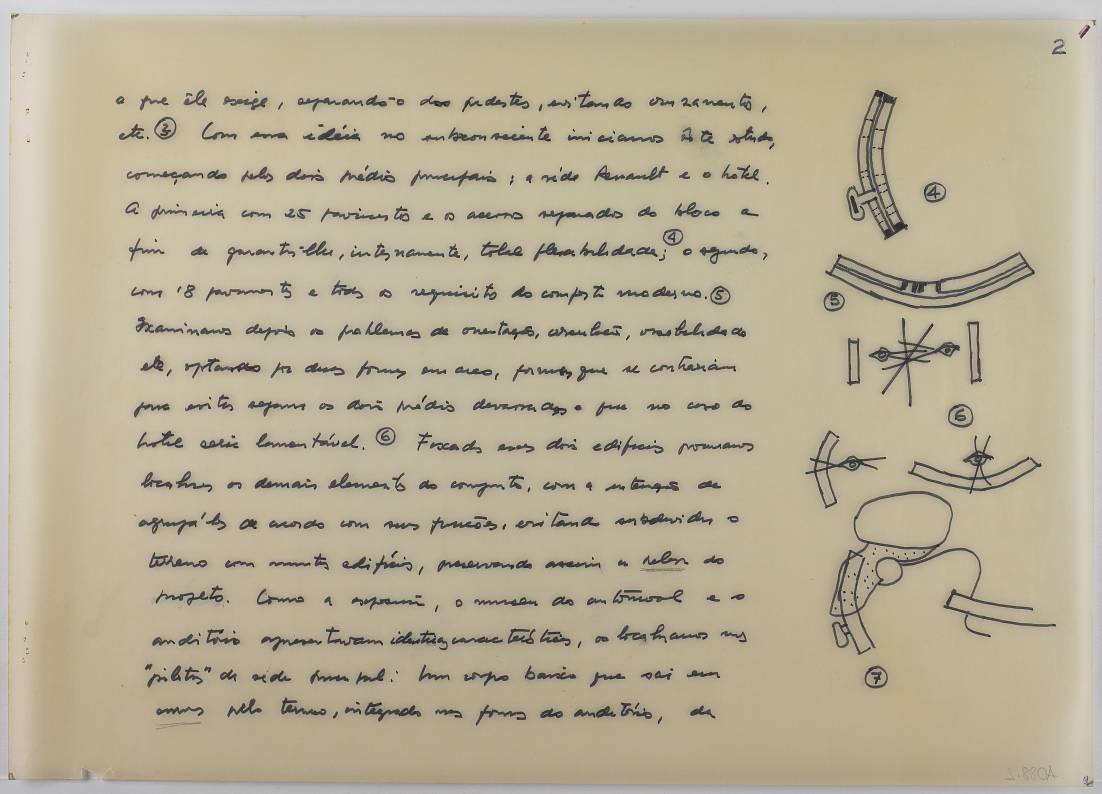 2
o que êle exige, separando-o dos pedestres, evitando cruzamentos,
etc. ③ Com essa idéia no subconsciente iniciamos êste estudo,
começando pelos dois prédios principais: a séde Renault e o hotel.
A primeira com 25 pavimentos e os acessos separados do bloco a
fim de garantir-lhe, internamente, total flexibilidade; ④ o segundo,
com 18 pavimentos e todos os requisitos do conforto moderno. ⑤
Examinamos depois os problemas de orientação, circulação, visibilidade
etc, optando por duas formas em arco, formas que se
para evitar os dois prédios devassados o que no caso do
hotel seria lamentável. ⑥ Fixados esses dois edifícios procuramos
localizar os demais elementos do conjunto, com a intenção de
agrupá-los de acordo com suas funções, evitando subdividir o
terreno com muitos edifícios, preservando assim a do
projeto. Como a exposição, o museu do automóvel e o
auditório apresentavam características, os localizamos nos
"pilotis" da séde principal: Um corpo baixo que sai em
curvas pelo terreno, integrado nas formas do auditório, da
④
⑤
⑥
⑦
A088:2